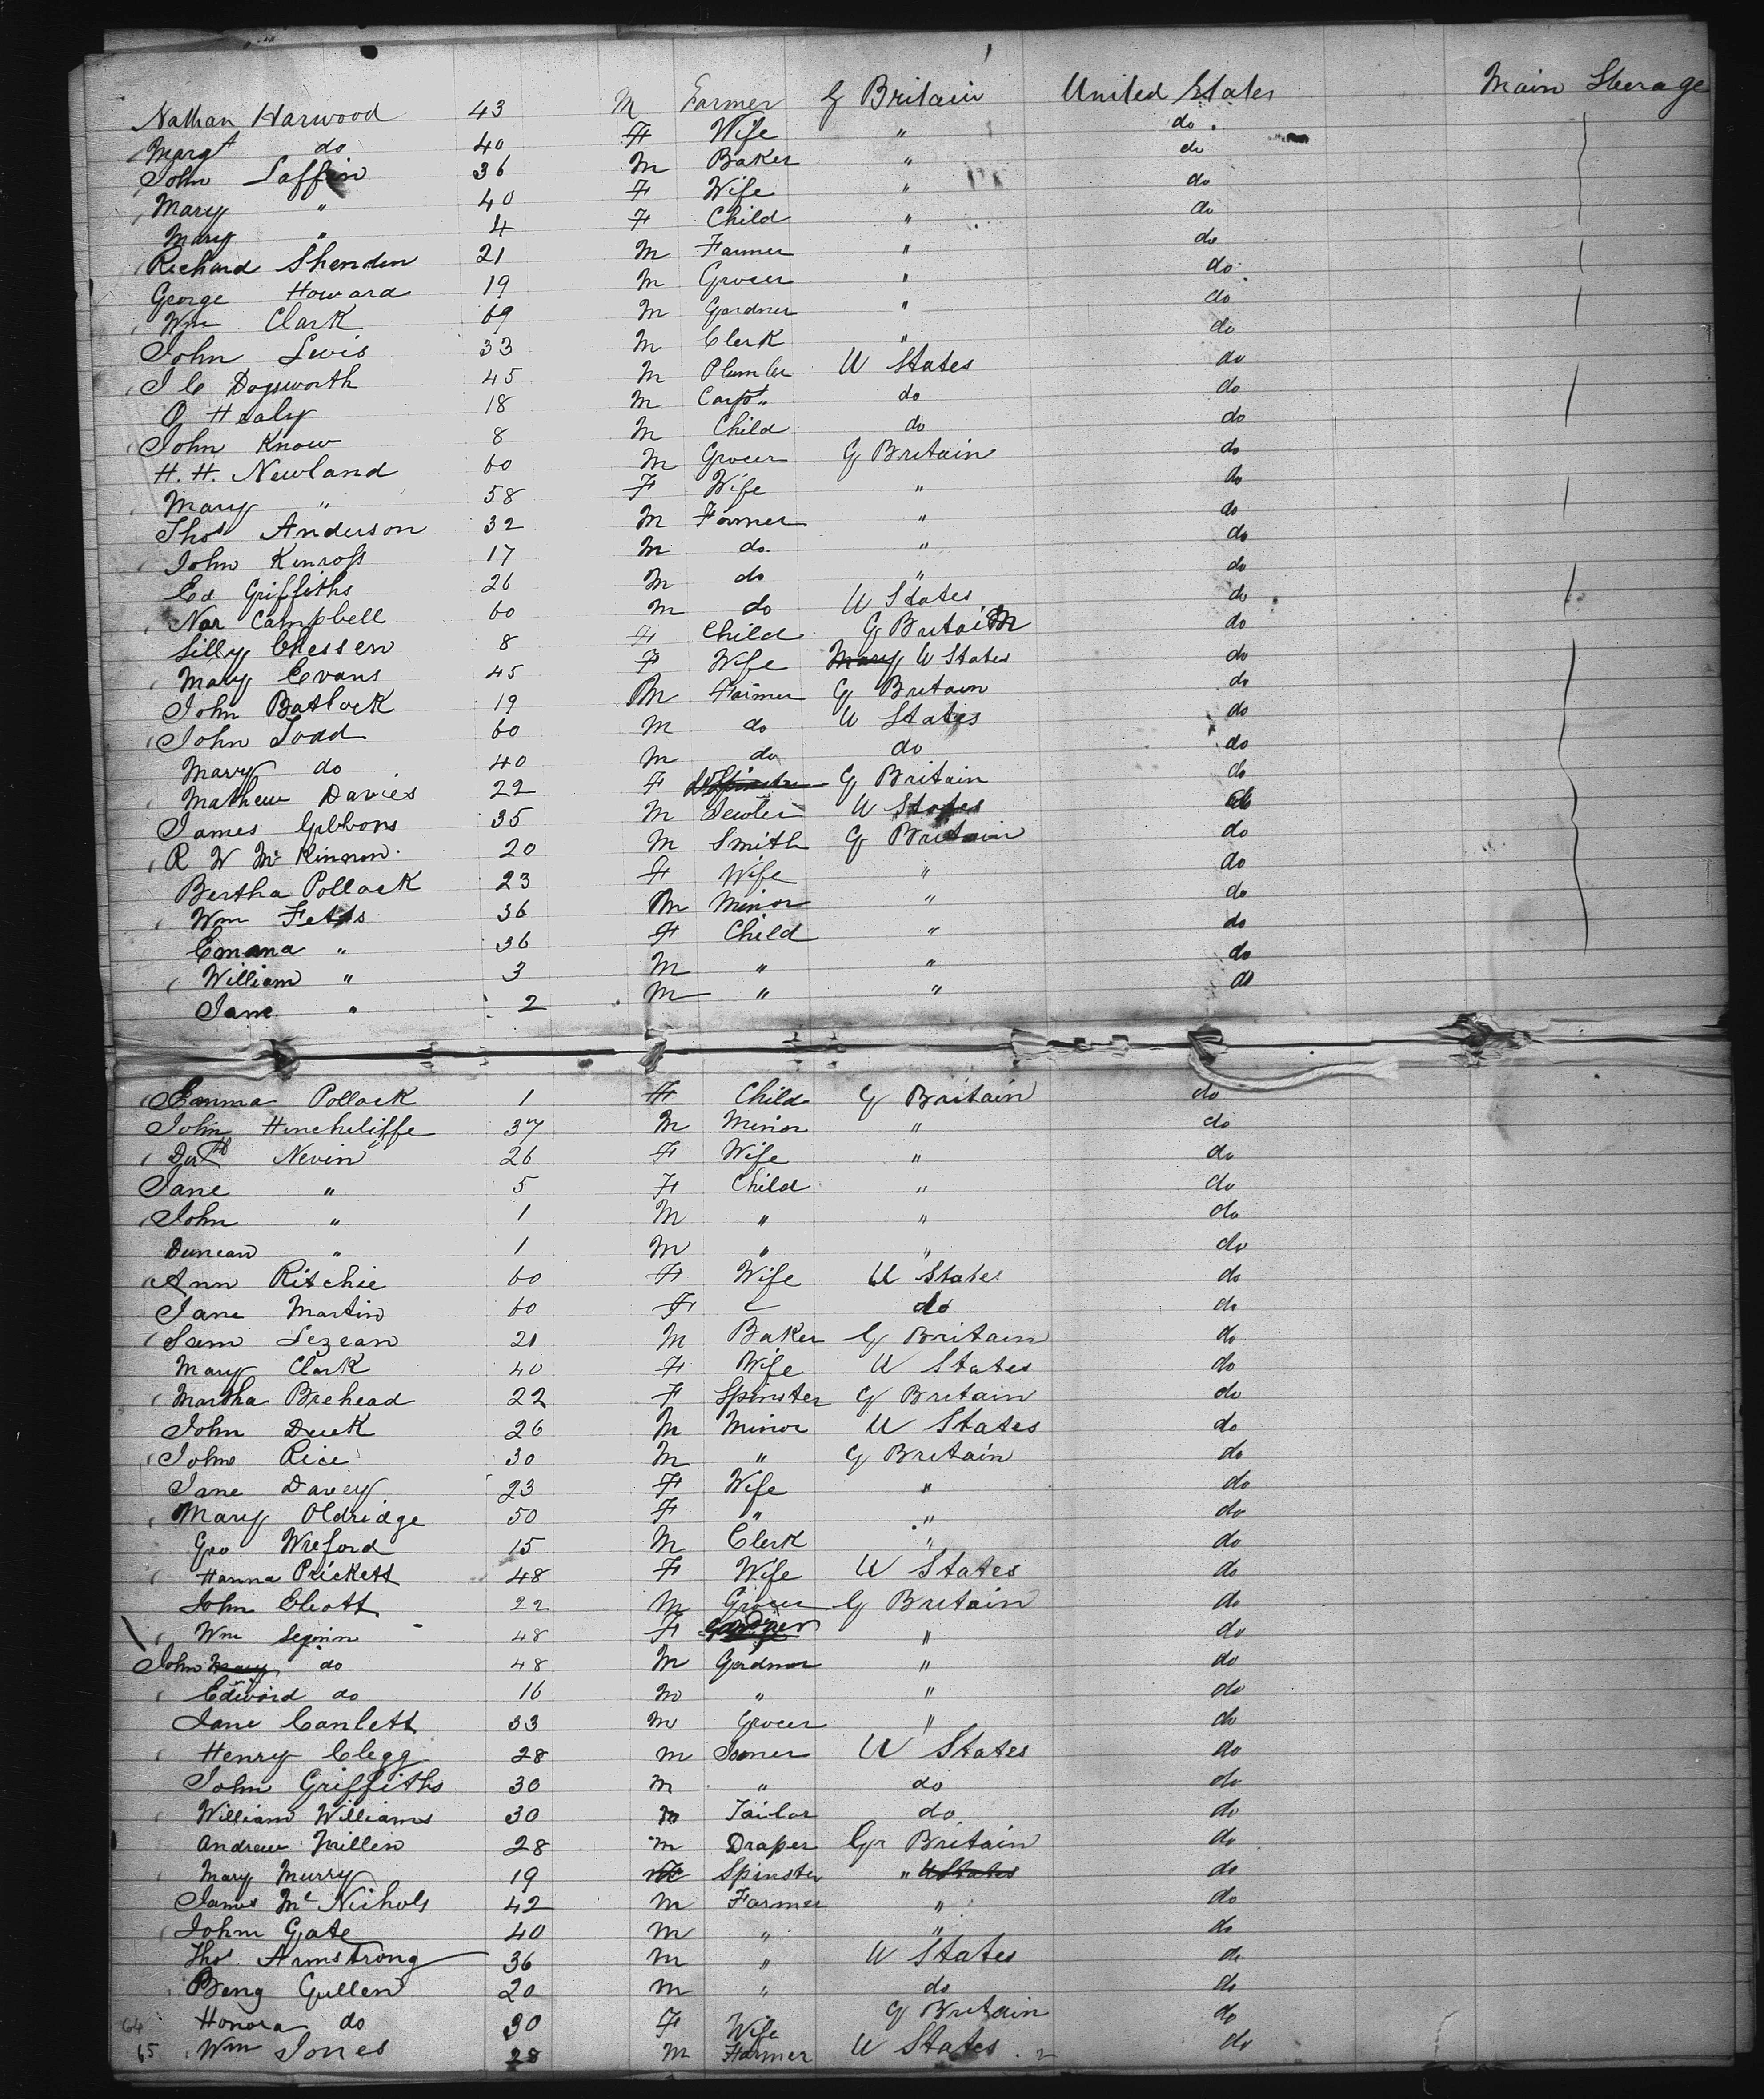 Nathan Harwood 43 M Farmer G Britain United States Main Steerage
Margt do 40 F Wife " do
John Laffin 36 M Baker " do
Mary " 40 F Wife " do
Mary " 4 F Child " do
Richard Shenden 21 M Farmer " do
George Howard 19 M Grocer " do
Wm Clark 69 M Gardner " do
John Lewis 33 M Clerk " do
J C Dogsworth 45 M Plumber U States do
O Healy 18 M Carpt " do do
John Know 8 M Child do do
H. H. Newland 60 M Grocer G Britain do
Mary " 58 F Wife " do
Thos Anderson 32 M Farmer " do
John Kinross 17 M do " do
Ed Griffiths 26 M do " do
Nar Campbell 60 M do U States do
Lilly Chessen 8 F Child G Britain do
Mary Evans 45 F Wife Mary U States do
John Batlock 19 M Farmer G Britain do
John Todd 60 M do U States do
Mary do 40 M do do do
Mathew Davies 22 F Spinster G Britain do
James Gibbons 35 M Jewler U States do
R W Mc Kinnon 20 M Smith G Britain do
Bertha Pollock 23 F Wife " do
Wm Fetts 36 M Minor " do
Emma " 36 F Child " do
William " 3 M " " do
Jane " 2 M " " do
Emma Pollock 1 F Child G Britain do
John Hinchcliffe 37 M Minor " do
Nevin 26 F Wife " do
Jane " 5 F Child " do
John " 1 M " " do
Duncan " 1 M " " do
Ann Ritchie 60 F Wife U States do
Jane Martin 60 F " do do
Sam Lezean 21 M Baker G Britain do
Mary Clark 40 F Wife U States do
Martha Brehead 22 F Spinster G Britain do
John Duck 26 M Minor U States do
John Rice 30 M " G Britain do
Jane Davey 23 F Wife " do
Mary Oldridge 50 F " " do
Geo Wreford 15 M Clerk " do
Hanna Prickett 48 F Wife U States do
John Eliott 22 M Grocer G Britain do
Wm Seguin 48 F Gardner " do
John Mary do 48 M Gardner " do
Edward do 16 M " " do
Jane Canlett 33 M Grocer " do
Henry Clegg 28 M Joiner U States do
John Griffiths 30 M " do do
William Williams 30 M Tailor do do
Andrew Millin 28 M Draper Gr Britain do
Mary Murry 19 F Spinster " U States do
James Mc Nichols 42 M Farmer " do
John Gate 40 M " " do
Thos Armstrong 36 M " U States do
Beng Gullen 20 M " do do
64 Honora do 30 F Wife G Britain do
65 Wm Jones 28 M Farmer U States do